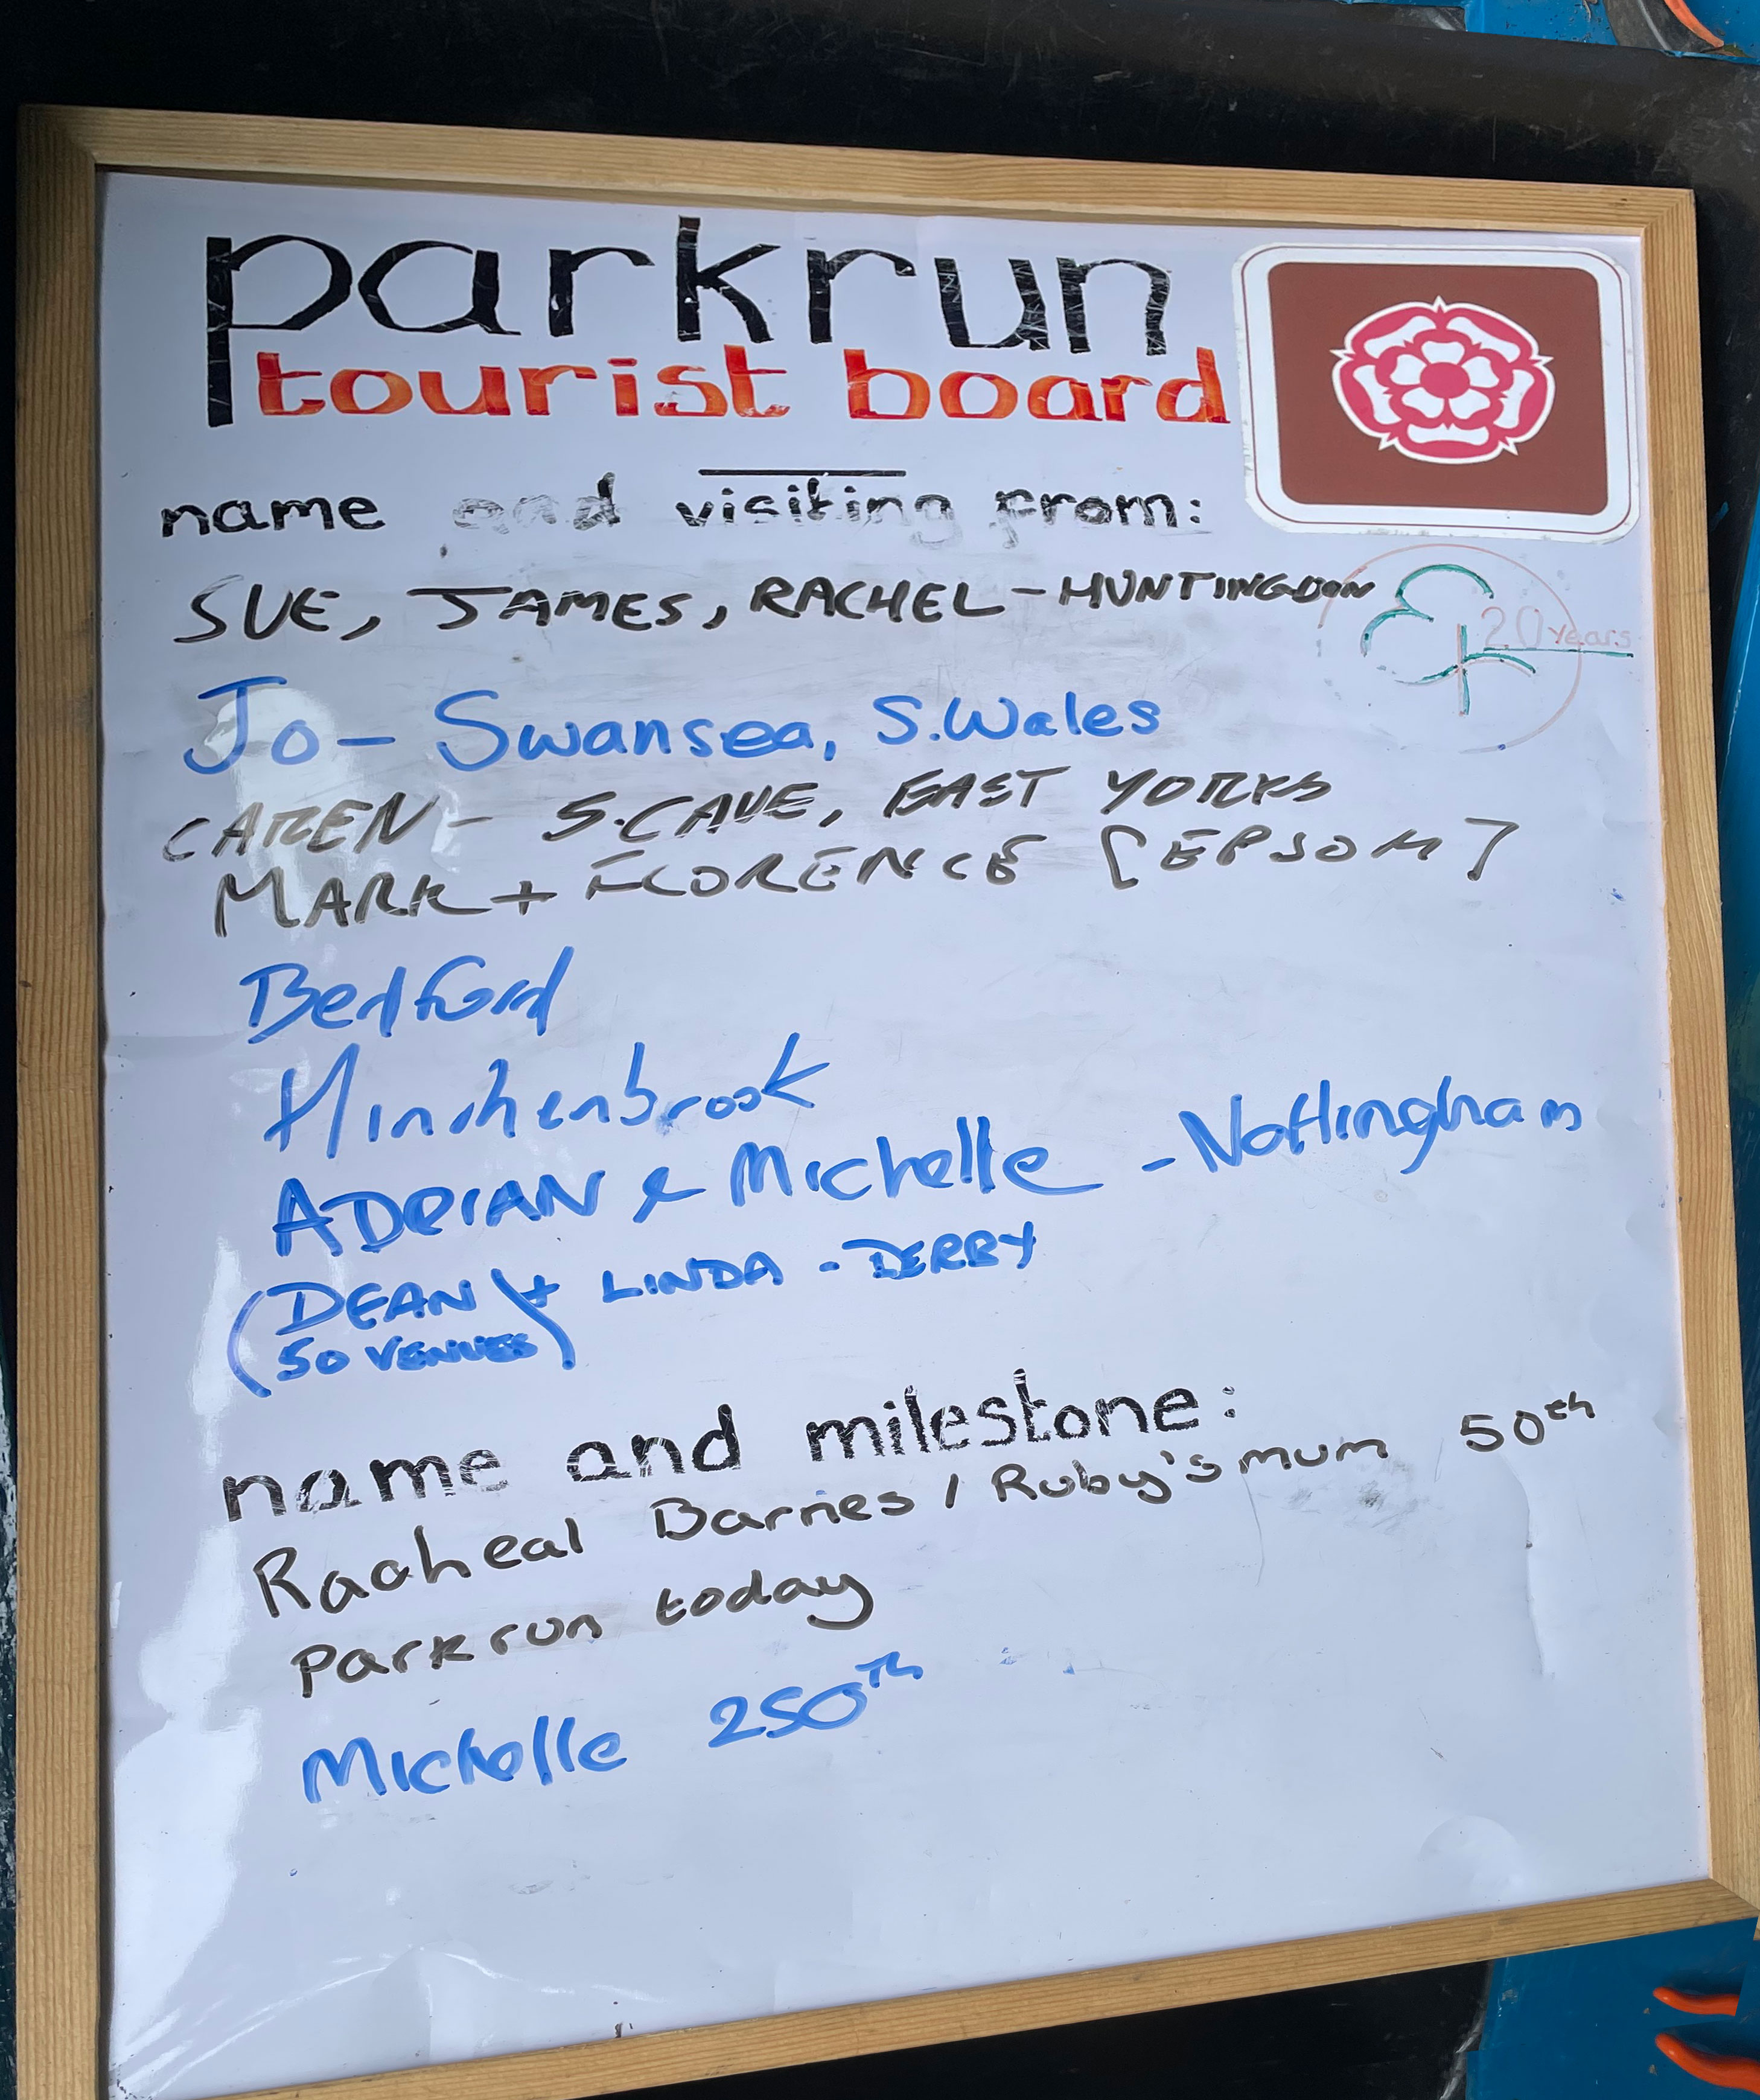 parkrun
tourist board
name and visiting from:
SUE, JAMES, RACHEL - HUNTINGDON
20 years
Jo - Swansea, S.Wales
CAREN - S.CAVE, EAST YORKS
MARK + FLORENCE [EPSOM]
Bedford
Hinchenbrook
ADRIAN & Michelle - Nottingham
(DEAN) + LINDA - DERBY
50 VENUES
name and milestone:
Racheal Barnes / Ruby's mum 50th
parkrun today
Michelle 250Th